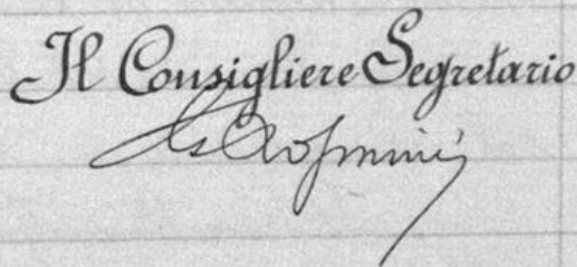 Il Consigliere Segretario